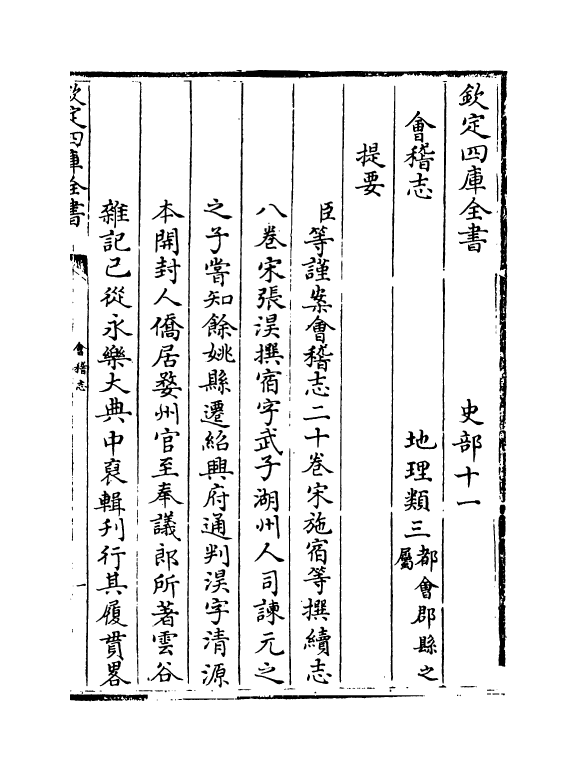 欽定四庫全書　史部十一
會稽志　地理類三都會郡縣之屬
提要
臣等謹案會稽志二十卷宋施宿等撰續志
八卷宋張淏撰宿字武子湖州人司諫元之
之子嘗知餘姚縣遷紹興府通判淏字清源
本開封人僑居婺州官至奉議郎所著雲谷
雜記已從永樂大典中裒輯刋行其履貫畧
欽定四庫全書
會稽志
一